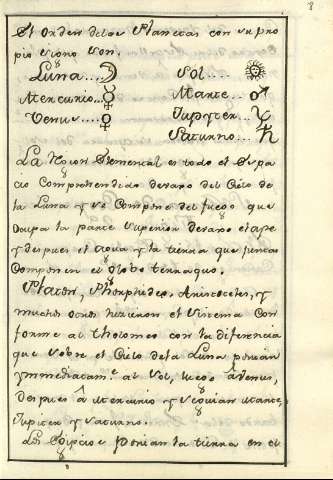 8
El orden de los Planetas con su pro
pio signo son.
Luna....☽ Sol....☉
Mercurio..☿ Marte....♂
Venus....♀ Jupyter..♃
Saturno..♄
La Rejion Elemental es todo el Espa
cio Comprehendido devajo del Cielo de
la Luna y se Compone del fuego que
Ocupa la parte Superior devajo el ayre
y despues el agua y la tierra que juntas
Componen el Globo terraqueo.
Platon, Aristoteles, y
muchos otros hizieron el Sistema Con
forme al tholomeo con la diferencia
que sobre el Cielo de la Luna ponian
ymmediatam.e al Sol, luego à Venus,
despues à Mercurio y seguian Marte,
Jupiter y Saturno.
Los Egipcios Ponian la tierra en el